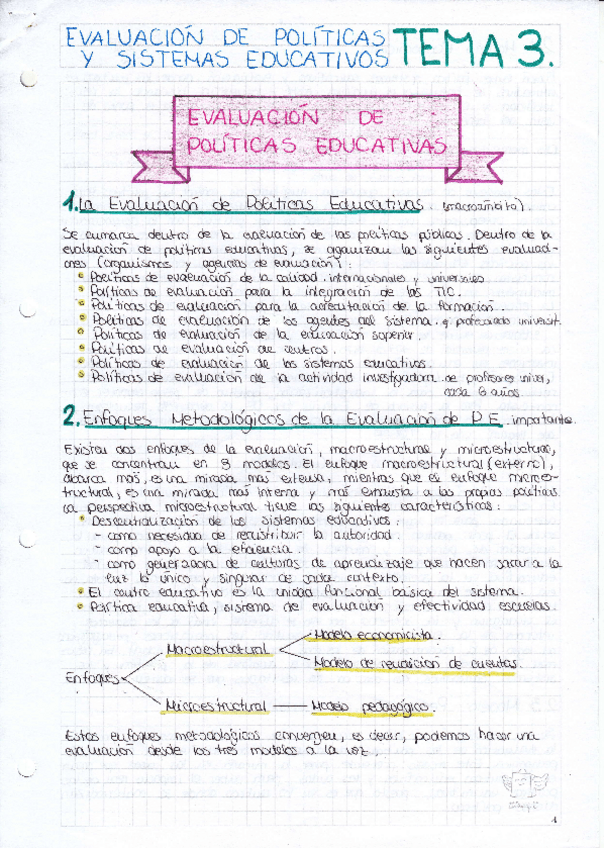 EVALUACIÓN DE POLÍTICAS
Y SISTEMAS EDUCATIVOS
TEMA 3.
EVALUACIÓN DE
POLÍTICAS EDUCATIVAS
1. La Evaluación de Políticas Educativas. (macroámbito).
Se enmarca dentro de la evaluación de las políticas públicas. Dentro de la
evaluación de políticas educativas, se organizan las siguientes evaluacio-
nes (organismos y agencias de evaluación):
Políticas de evaluación de la calidad. internacionales y universales
Políticas de evaluación para la integración de las TIC.
Políticas de evaluación para la acreditación de la formación.
Políticas de evaluación de los agentes del sistema. profesorado universit.
Políticas de evaluación de la educación superior.
Políticas de evaluación de centros.
Políticas de evaluación de los sistemas educativos.
Políticas de evaluación de la actividad investigadora. de profesores univer,
cada 6 años
2. Enfoques Metodológicos de la Evaluación de P.E. importante.
Existen dos enfoques de la evaluación, macroestructural y microestructural,
que se concentran en 3 modelos. El enfoque macroestructural (externo),
abarca más, es una mirada más extensa, mientras que el enfoque microes-
tructural, es una mirada más interna y más expuesta a las propias políticas.
La perspectiva microestructural tiene las siguientes características:
Descentralización de los sistemas educativos:
- como necesidad de redistribuir la autoridad.
- como apoyo a la eficiencia.
- como generadora de culturas de aprendizaje que hacen sacar a la
luz lo único y singular de cada contexto.
El centro educativo es la unidad funcional básica del sistema.
Política educativa, sistema de evaluación y efectividad escuelas.
Enfoques
Macroestructural
Modelo economicista.
Modelo de rendición de cuentas.
Microestructural
Modelo pedagógico.
Estos enfoques metodológicos convergen, es decir, podemos hacer una
evaluación desde los tres modelos a la vez.